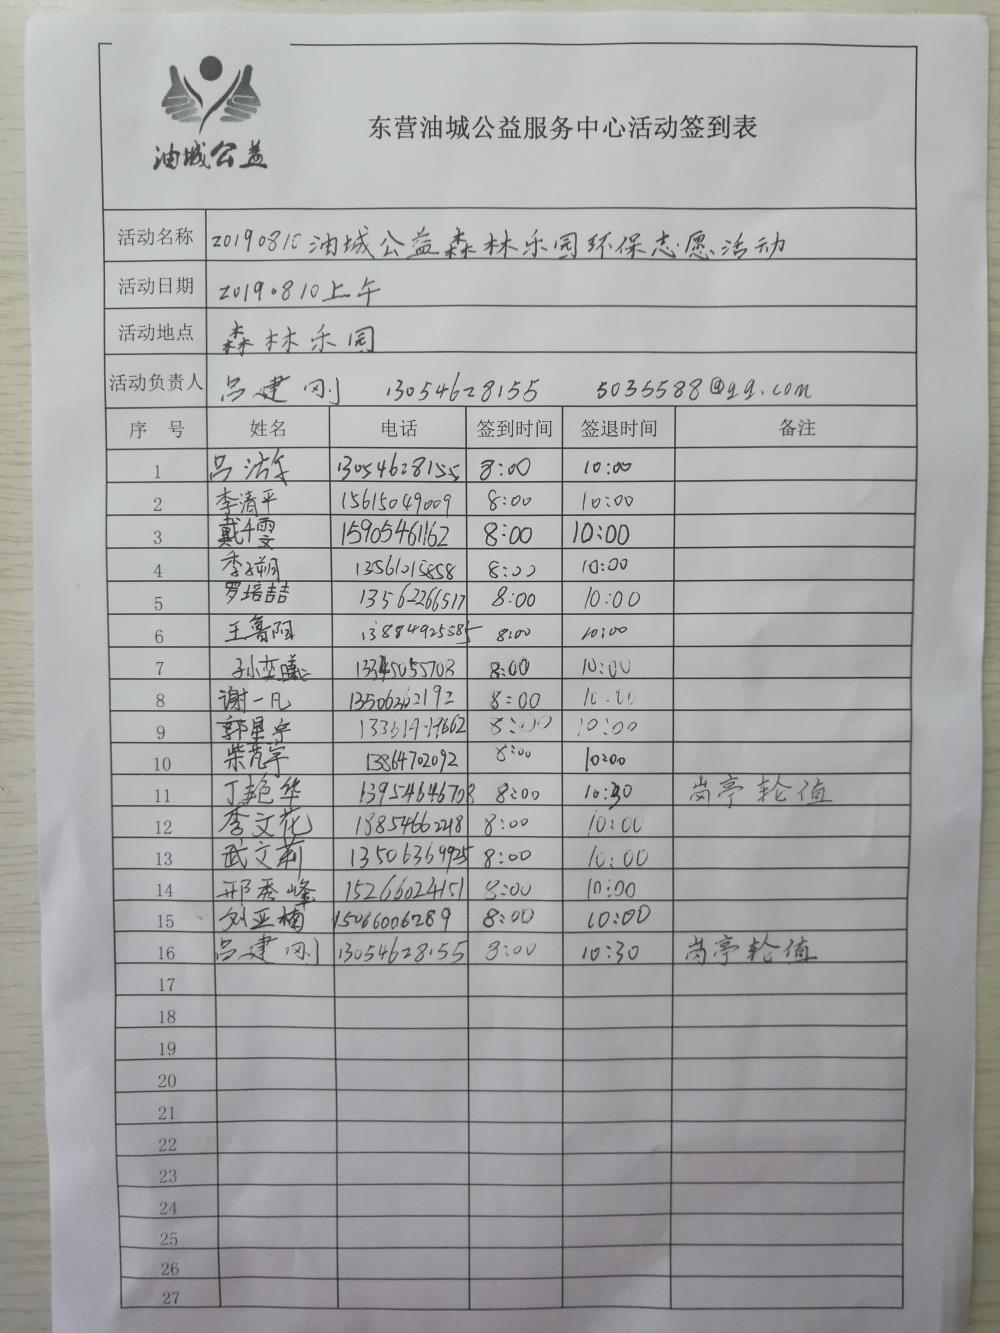 油城公益
东营油城公益服务中心活动签到表
活动名称 20190810油城公益森林乐园环保志愿活动
活动日期 20190810上午
活动地点 森林乐园
活动负责人 吕建刚 13054628155 5035588@qq.com
序 号 姓名 电话 签到时间 签退时间 备注
1 吕 13054628155 8:00 10:00
2 李清平 15615049009 8:00 10:00
3 戴千雯 15905461162 8:00 10:00
4 季翊 13561015858 8:00 10:00
5 罗培喆 13562266517 8:00 10:00
6 王鲁阳 13884925585 8:00 10:00
7 孙奕曦 13345055708 8:00 10:00
8 谢一凡 13506362192 8:00 10:00
9 郭星宇 8:00 10:00
10 柴芃宇 13864702092 8:00 10:00
11 丁艳华 13954646708 8:00 10:30 岗亭轮值
12 李文花 18854662218 8:00 10:00
13 武文莉 13506369925 8:00 10:00
14 邢秀峰 15266024151 8:00 10:00
15 刘亚楠 15066006289 8:00 10:00
16 吕建刚 13054628155 8:00 10:30 岗亭轮值
17
18
19
20
21
22
23
24
25
26
27